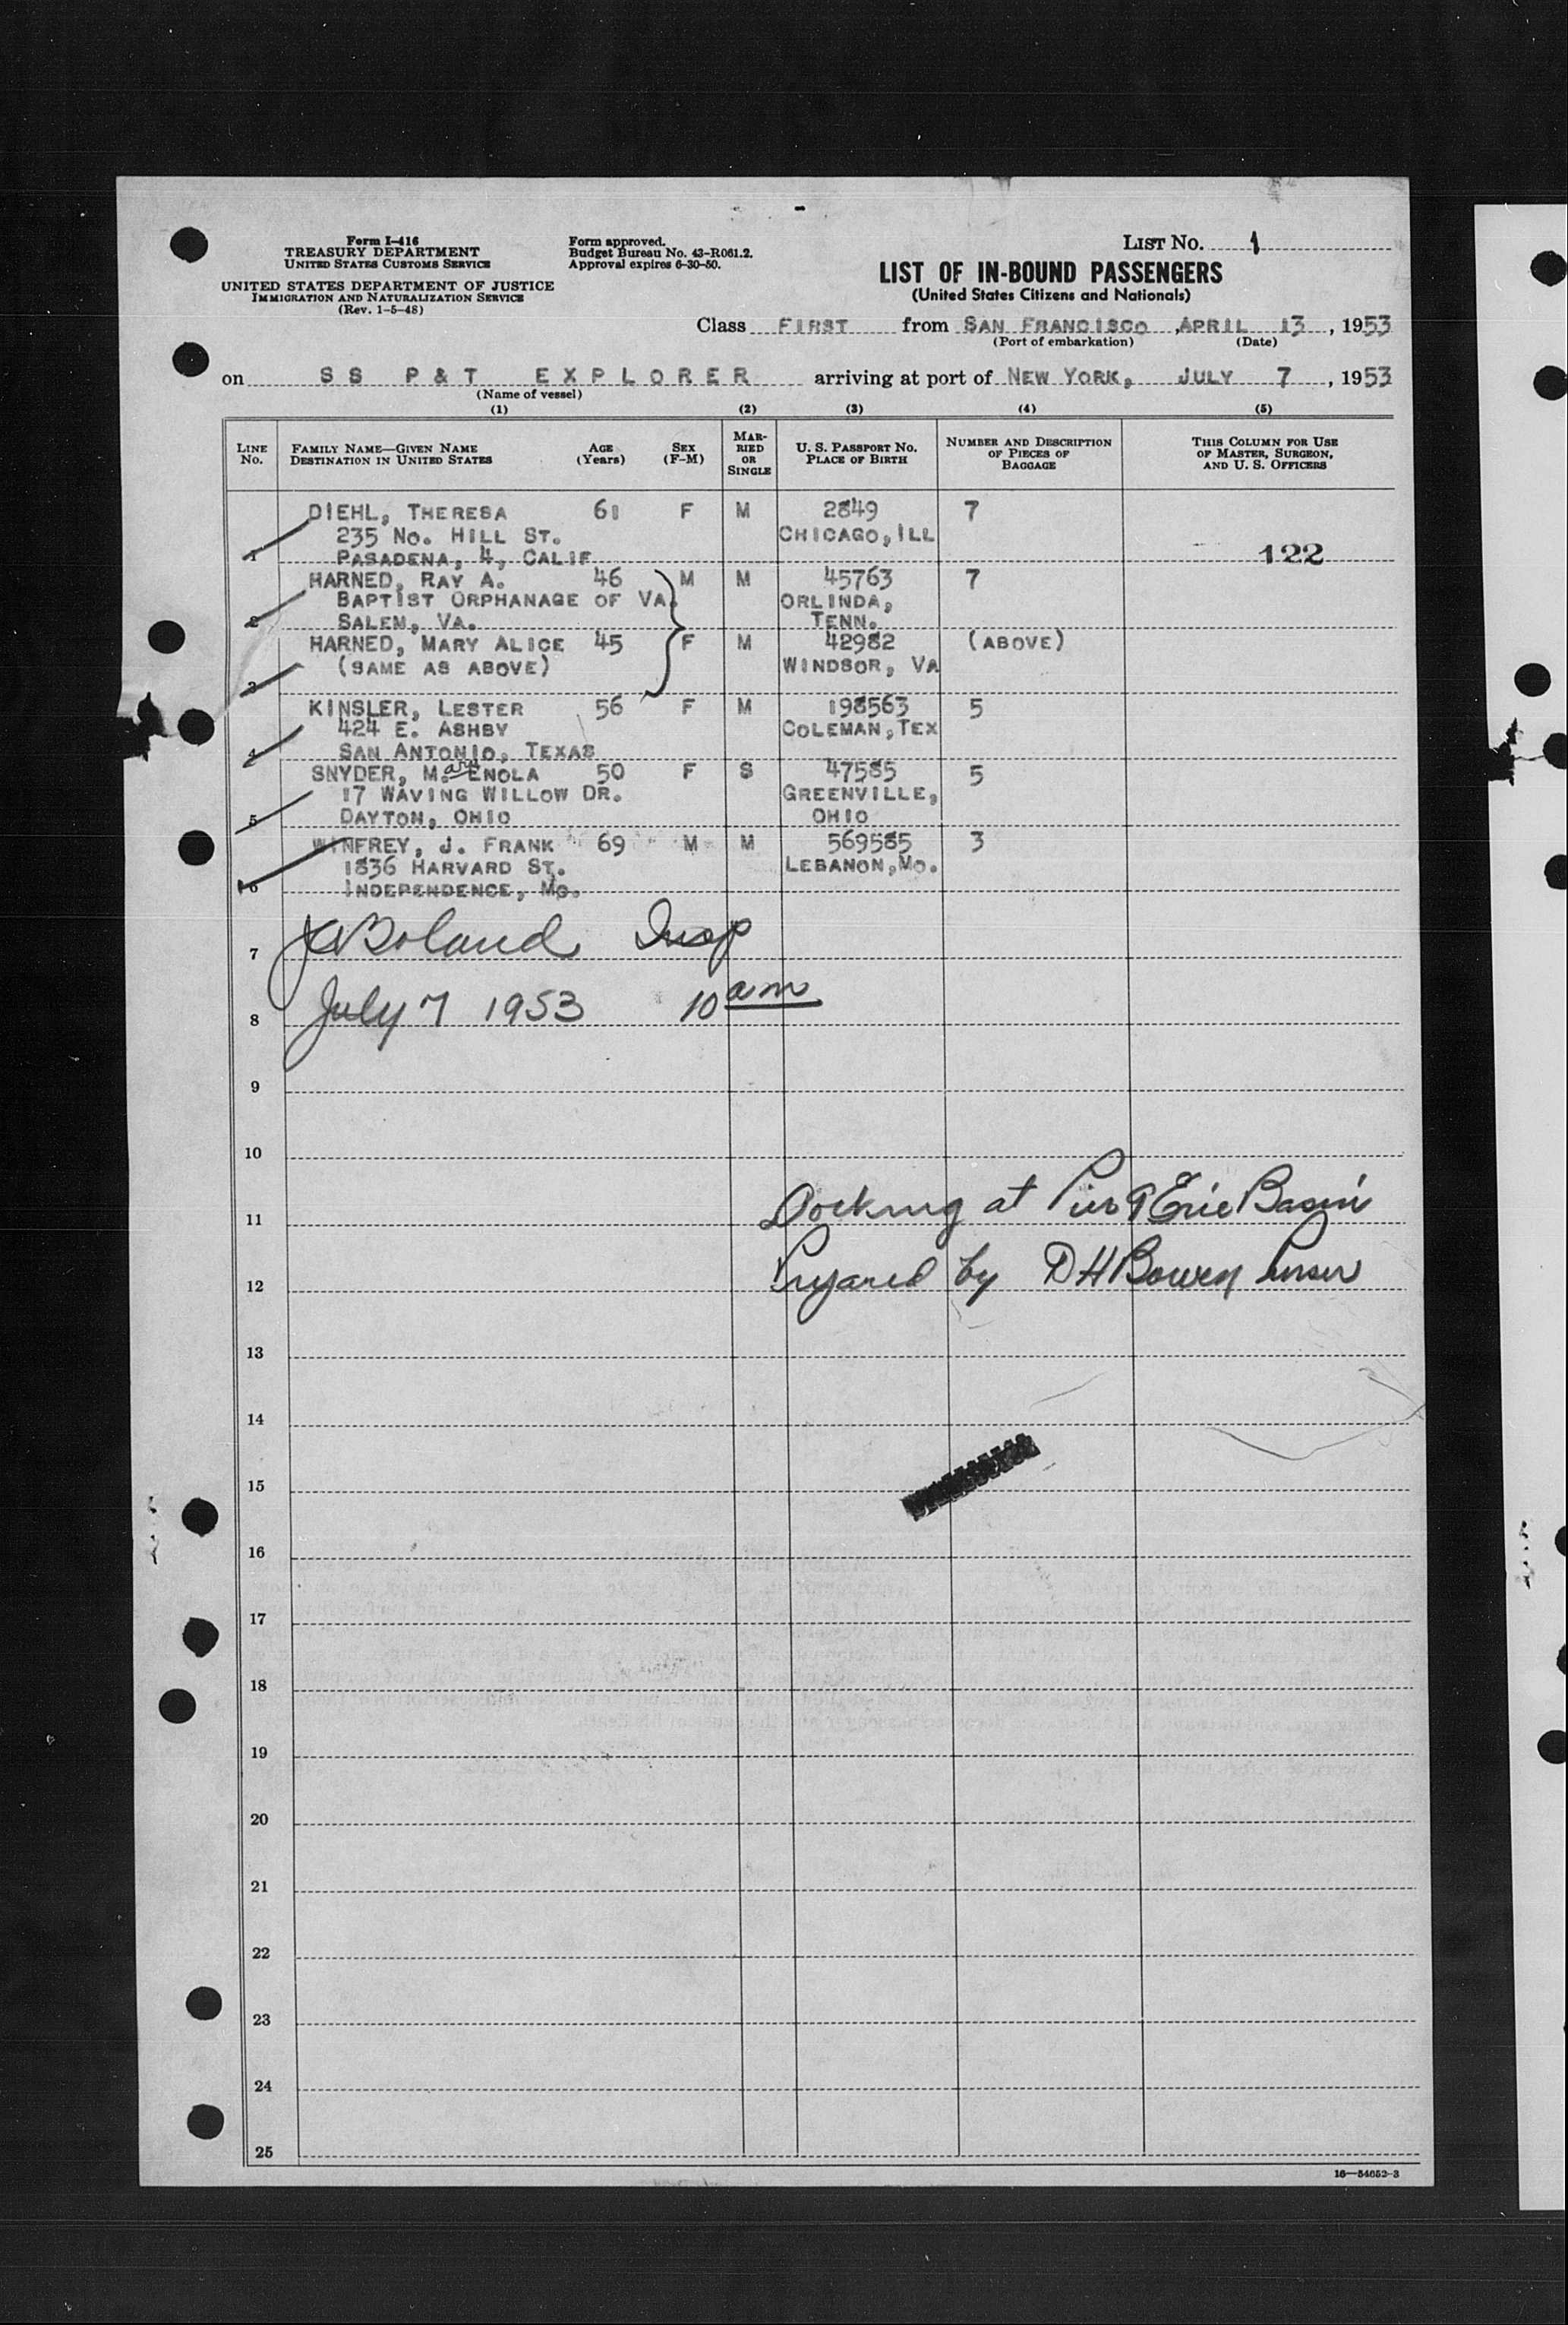 Form I-416
TREASURY DEPARTMENT
UNITED STATES CUSTOMS SERVICE
UNITED STATES DEPARTMENT OF JUSTICE
IMMIGRATION AND NATURALIZATION SERVICE
(Rev. 1-5-48)
Form approved.
Budget Bureau No. 43-R061.2.
Approval expires 6-30-50.
LIST No. 1
LIST OF IN-BOUND PASSENGERS
(United States Citizens and Nationals)
Class FIRST from SAN FRANCISCO, APRIL 13, 1953
(Port of embarkation) (Date)
on SS P&T EXPLORER arriving at port of NEW YORK, JULY 7, 1953
(Name of vessel)
(1) (2) (3) (4) (5)
LINE No. FAMILY NAME—GIVEN NAME DESTINATION IN UNITED STATES AGE (Years) SEX (F-M) MARRIED OR SINGLE U. S. PASSPORT NO. PLACE OF BIRTH NUMBER AND DESCRIPTION OF PIECES OF BAGGAGE THIS COLUMN FOR USE OF MASTER, SURGEON, AND U. S. OFFICERS
DIEHL, THERESA 61 F M 2849 7
235 NO. HILL ST. CHICAGO, ILL
1 PASADENA, 4, CALIF 122
HARNED, RAY A. 46 M M 45763 7
BAPTIST ORPHANAGE OF VA. ORLINDA,
2 SALEM, VA. TENN.
HARNED, MARY ALICE 45 F M 42982 (ABOVE)
(SAME AS ABOVE) WINDSOR, VA
3
KINSLER, LESTER 56 F M 198563 5
424 E. ASHBY COLEMAN, TEX
4 SAN ANTONIO, TEXAS
SNYDER, M.ary ENOLA 50 F S 47585 5
17 WAVING WILLOW DR. GREENVILLE,
5 DAYTON, OHIO OHIO
WINFREY, J. FRANK 69 M M 569585 3
1836 HARVARD ST. LEBANON, MO.
6 INDEPENDENCE, MO.
7 Boland Insp
8 July 7 1953 10 am
9
10
11 Docking at Pier 9 Erie Basin
12 Prepared by D H Bowen Purser
13
14
15
16
17
18
19
20
21
22
23
24
25
16—54652-3